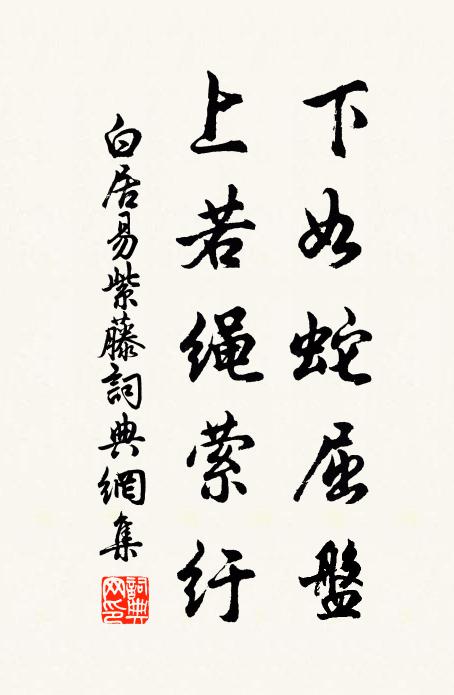 下如蛇屈盤
上若繩萦纡
白居易紫藤詞典網集
詞典网印